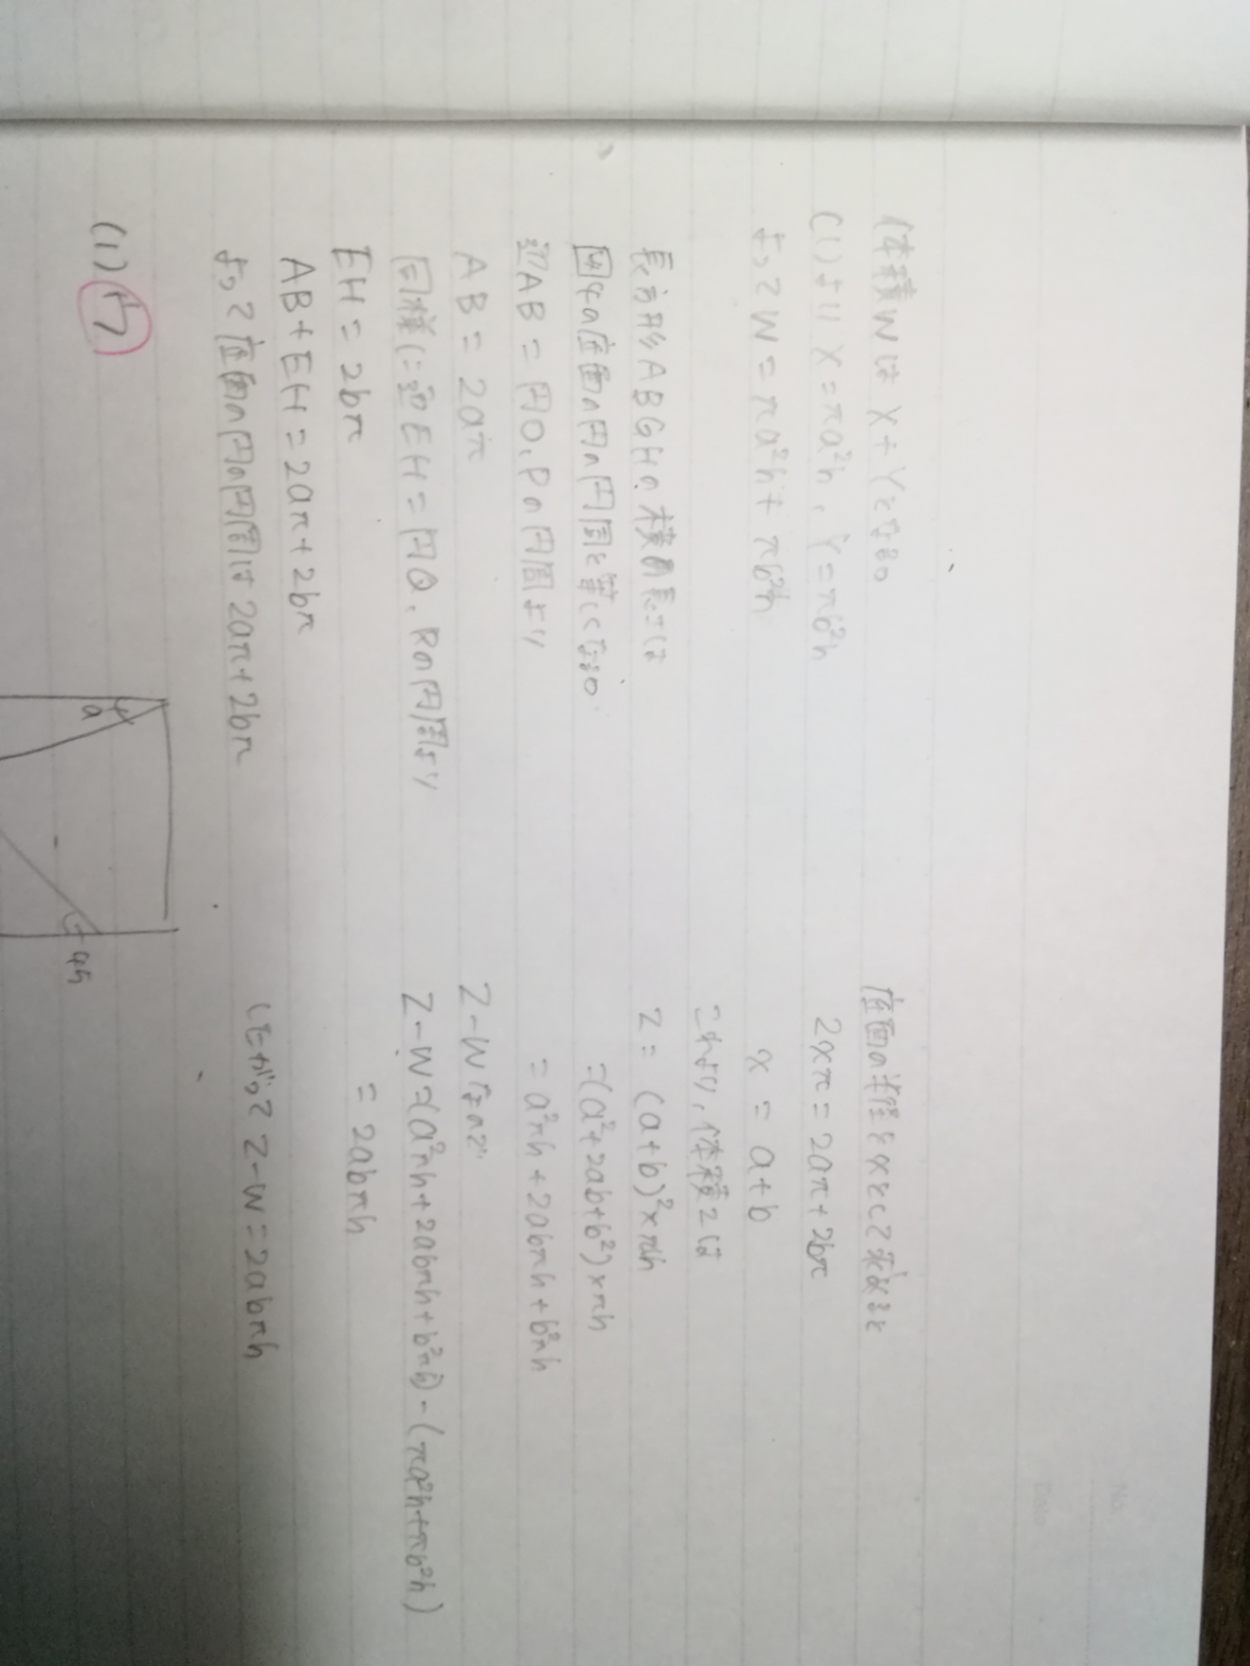 No.
Date
体積Wは X+Yとなる。
(1)より X=πa²h, Y=πb²h
よって W=πa²h+πb²h
長方形ABGHの横の長さは
図4の底面の円の円周と等しくなる。
辺AB=円O,Pの円周より
AB=2aπ
同様に辺EH=円Q,Rの円周より
EH=2bπ
AB+EH=2aπ+2bπ
よって底面の円の円周は2aπ+2bπ
底面の半径をxとして求めると
2xπ=2aπ+2bπ
x=a+b
これより,体積Zは
Z=(a+b)²×πh
=(a²+2ab+b²)×πh
=a²πh+2abπh+b²πh
Z-Wなので
Z-W=(a²πh+2abπh+b²πh)-(πa²h+πb²h)
=2abπh
したがって Z-W=2abπh
(1)
a